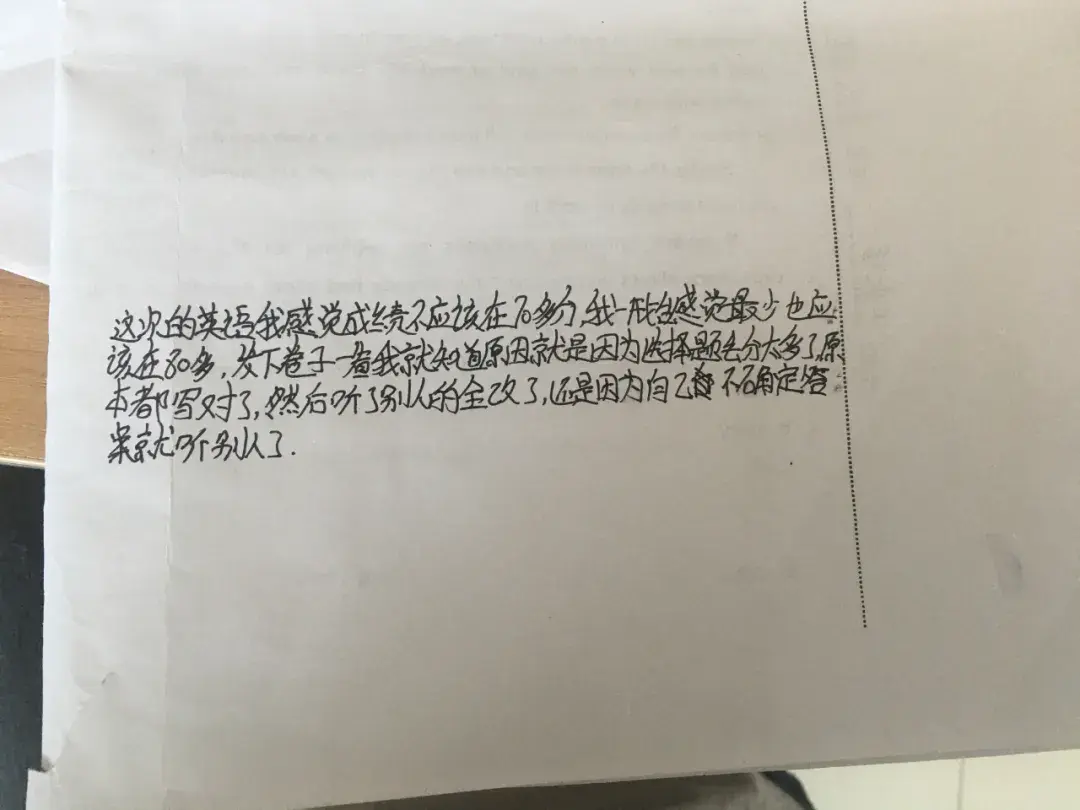 这次的英语我感觉成绩不应该在70多分,我一般感觉最少也应
该在80多,发下卷子一看我就知道原因就是因为选择题丢分太多了原
本都写对了,然后听了别人的全改了,还是因为自己不确定答
案就听别人了.